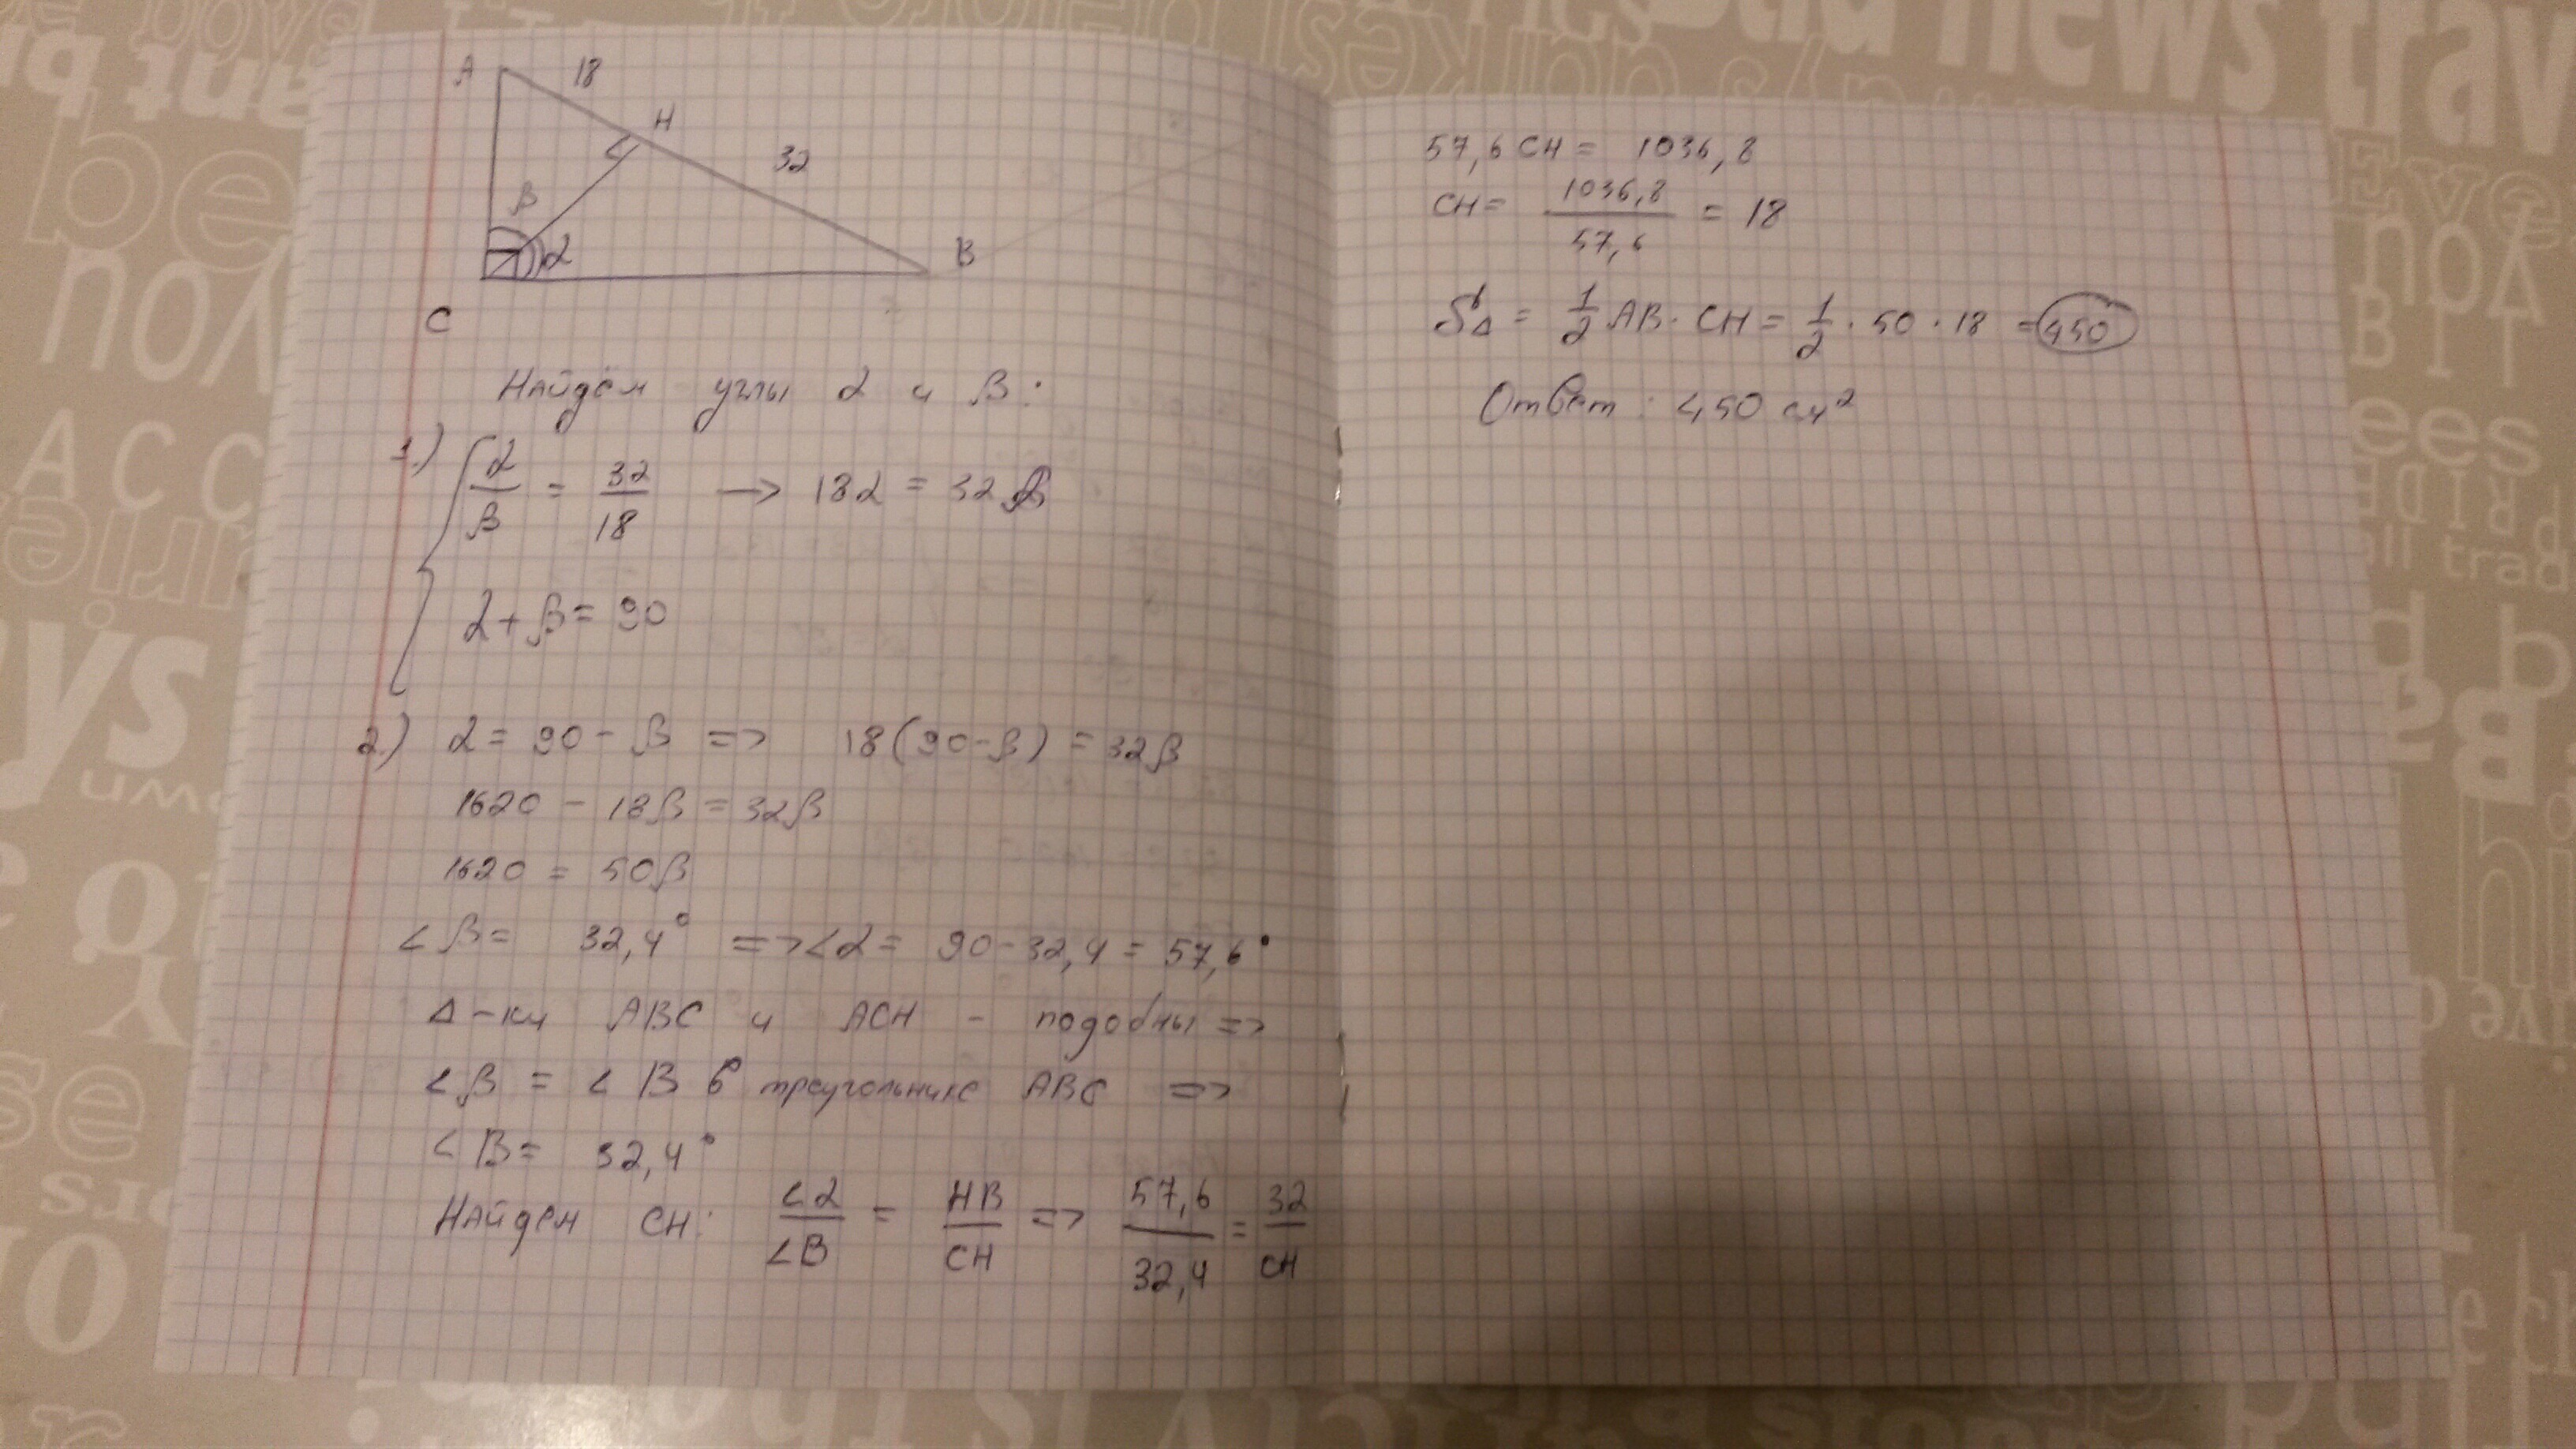 A 18
H
32
β
α
B
C
Найдём углы α и β:
1.) α/β = 32/18 → 18α = 32β
α + β = 90
2.) α = 90 - β => 18(90-β) = 32β
1620 - 18β = 32β
1620 = 50β
∠β = 32,4° => ∠α = 90-32,4 = 57,6°
Δ-ки ABC и ACH - подобны =>
∠β = ∠B в треугольнике ABC =>
∠B = 32,4°
Найдем CH: ∠α/∠B = HB/CH => 57,6/32,4 = 32/CH
57,6 CH = 1036,8
CH = 1036,8/57,6 = 18
S△ = 1/2 AB · CH = 1/2 · 50 · 18 = 450
Ответ: 450 см²